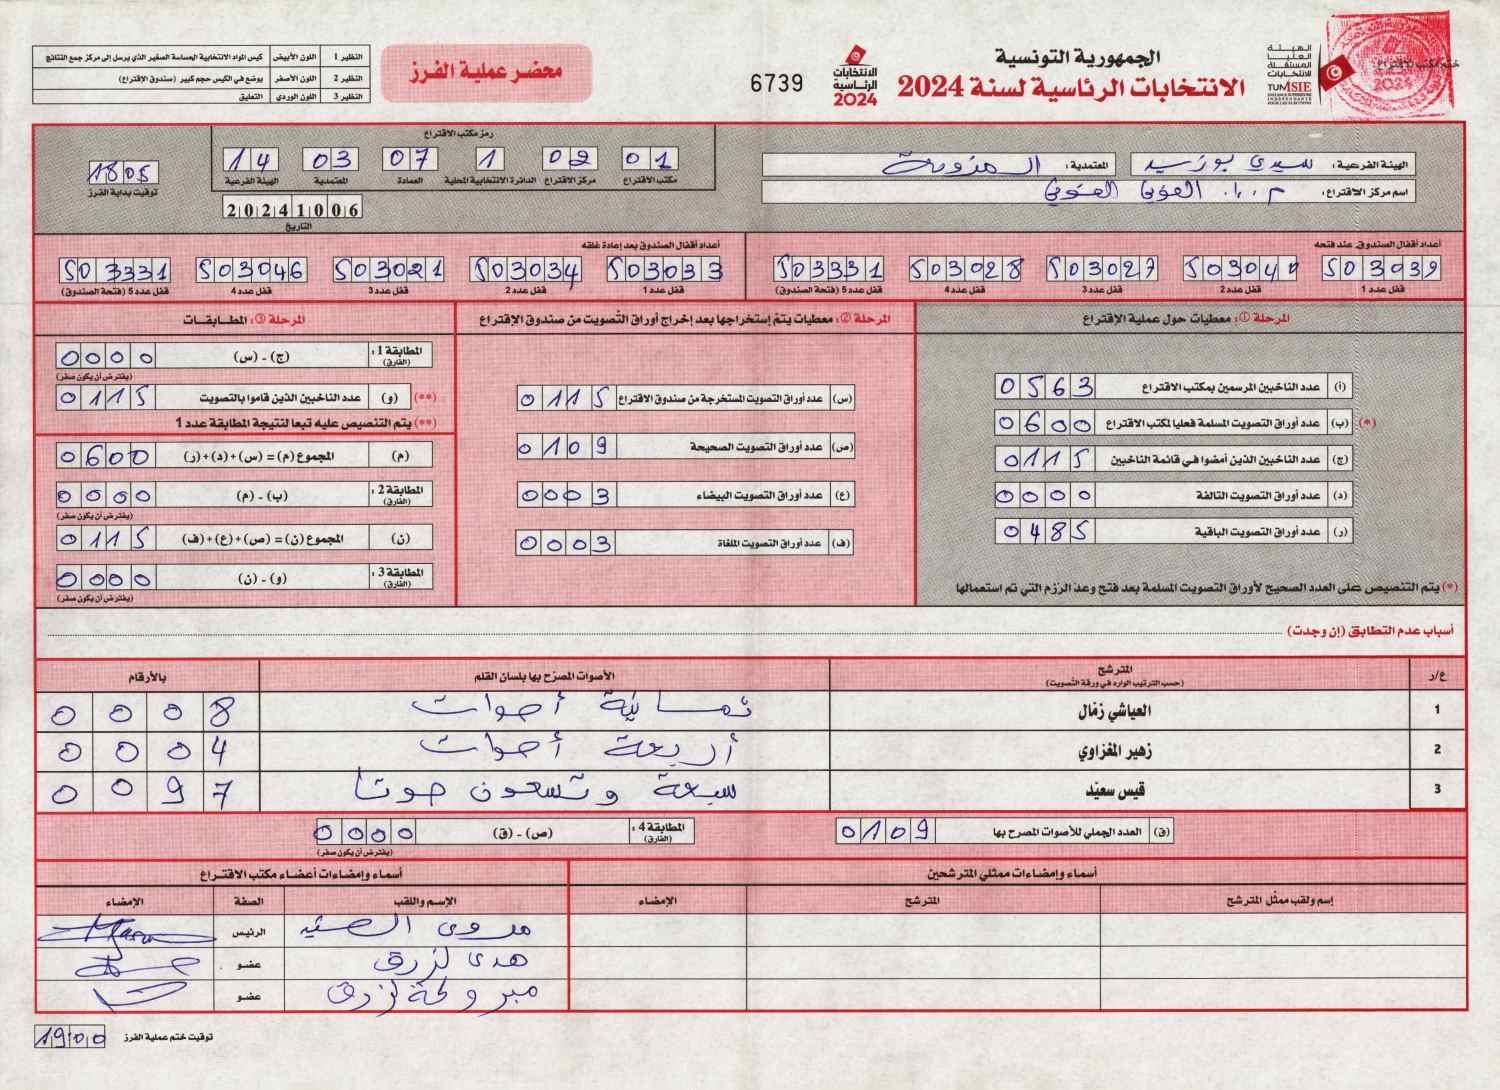 ختم مكتب الاقتراع
الهيئة
العليا
المستقلة
للانتخابات
TUNISIE
الجمهورية التونسية
الانتخابات الرئاسية لسنة 2024
الانتخابات
الرئاسية
2024
6739
محضر عملية الفرز
النظير 1 اللون الأبيض كيس المواد الانتخابية الحساسة الصغير الذي يرسل إلى مركز جمع النتائج
النظير 2 اللون الأصفر يوضع في الكيس حجم كبير (صندوق الإقتراع)
النظير 3 اللون الوردي التعليق
الهيئة الفرعية: سيدي بوزيد المعتمدية: المزونة
اسم مركز الاقتراع: م.إ. العوني
رمز مكتب الاقتراع
01 02 1 07 03 14
مكتب الاقتراع مركز الاقتراع الدائرة الانتخابية المحلية العمادة المعتمدية الهيئة الفرعية
20241006
التاريخ
1805
توقيت بداية الفرز
أعداد أقفال الصندوق عند فتحه
503039 503040 503027 503028 503331
قفل عدد 1 قفل عدد 2 قفل عدد 3 قفل عدد 4 قفل عدد 5 (فتحة الصندوق)
أعداد أقفال الصندوق بعد إعادة غلقه
503033 503034 503021 503046 503331
قفل عدد 1 قفل عدد 2 قفل عدد 3 قفل عدد 4 قفل عدد 5 (فتحة الصندوق)
المرحلة ①: معطيات حول عملية الإقتراع
(أ) عدد الناخبين المرسمين بمكتب الاقتراع 0563
(*) (ب) عدد أوراق التصويت المسلمة فعليا لمكتب الاقتراع 0600
(ج) عدد الناخبين الذين أمضوا في قائمة الناخبين 0115
(د) عدد أوراق التصويت التالفة 0000
(ر) عدد أوراق التصويت الباقية 0485
(*) يتم التنصيص على العدد الصحيح لأوراق التصويت المسلمة بعد فتح وعد الرزم التي تم استعمالها
المرحلة ②: معطيات يتم إستخراجها بعد إخراج أوراق التصويت من صندوق الإقتراع
(س) عدد أوراق التصويت المستخرجة من صندوق الاقتراع 0115
(ص) عدد أوراق التصويت الصحيحة 0109
(ع) عدد أوراق التصويت البيضاء 0003
(ف) عدد أوراق التصويت الملغاة 0003
المرحلة ③: المطابقات
المطابقة 1: (الفارق) (ج) - (س) 0000
(يفترض أن يكون صفر)
(**) (و) عدد الناخبين الذين قاموا بالتصويت 0115
(**) يتم التنصيص عليه تبعا لنتيجة المطابقة عدد 1
(م) المجموع (م) = (س)+(د)+(ر) 0600
المطابقة 2: (الفارق) (ب) - (م) 0000
(يفترض أن يكون صفر)
(ن) المجموع (ن) = (ص)+(ع)+(ف) 0115
المطابقة 3: (الفارق) (و) - (ن) 0000
(يفترض أن يكون صفر)
أسباب عدم التطابق (إن وجدت)
ع/ر المترشح الأصوات المصرح بها بلسان القلم بالأرقام
(حسب الترتيب الوارد في ورقة التصويت)
1 العياشي زمّال ثمانية أصوات 0008
2 زهير المغزاوي أربعة أصوات 0004
3 قيس سعيّد سبعة وتسعون صوتا 0097
(ق) العدد الجملي للأصوات المصرح بها 0109
المطابقة 4: (الفارق) (ص) - (ق) 0000
(يفترض أن يكون صفر)
أسماء وإمضاءات ممثلي المترشحين
إسم ولقب ممثل المترشح المترشح الإمضاء
أسماء وإمضاءات أعضاء مكتب الاقتراع
الإسم واللقب الصفة الإمضاء
الرئيس
هدى لزرق عضو
مبروكة لزرق عضو
توقيت ختم عملية الفرز 1900